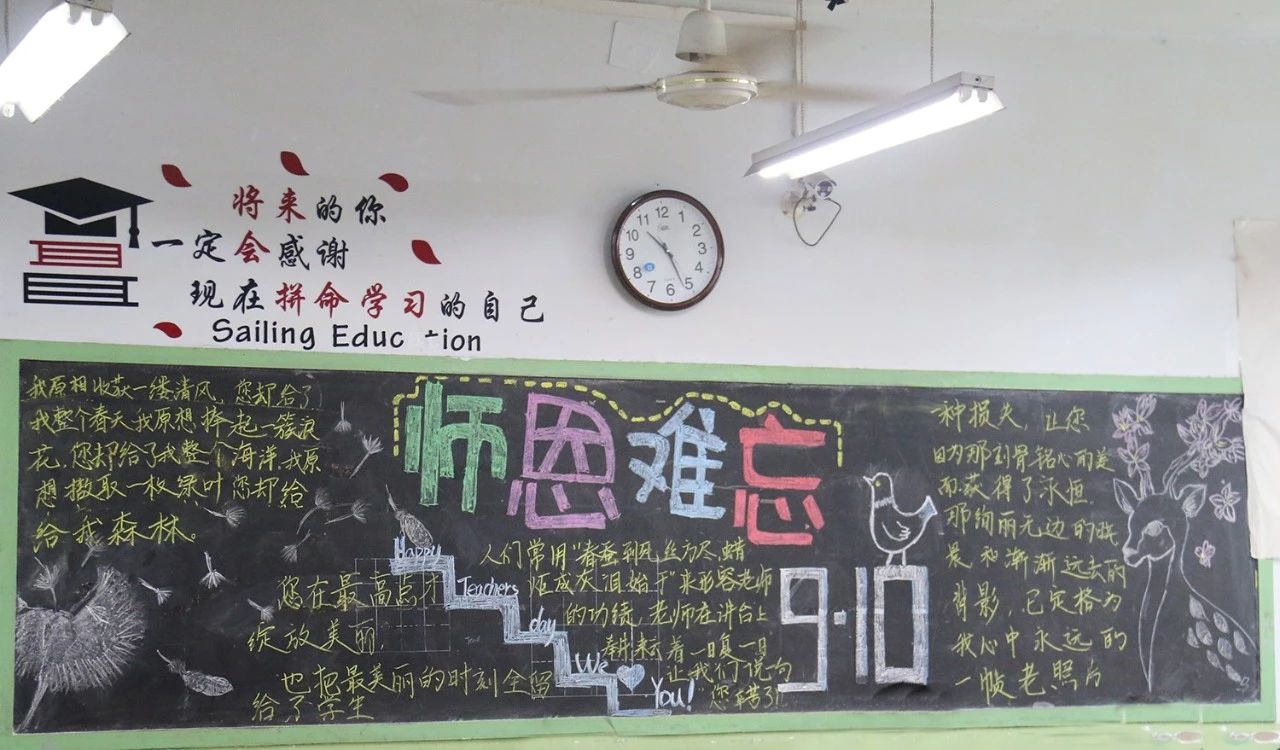 将来的你
一定会感谢
现在拼命学习的自己
Sailing Educ tion
12
1
2
3
4
5
6
7
8
9
10
11
我原想收获一缕清风，您却给了
我整个春天我原想捧起一簇浪
花，您却给了我整个海洋，我原
想撷取一枚绿叶您却给
给我森林。
师恩难忘
您在最高点才
绽放美丽，
也把最美丽的时刻全留
给了学生
Happy
Teachers
day
We
You!
人们常用“春蚕到死丝方尽 蜡
炬成灰泪始干”来形容老师
的功绩，老师在讲台上
耕耘着一日复一日
让我们说一句
“您辛苦了！
9·10
一种损失，让您
因为那刻骨铭心的美
而获得了永恒
那绚丽无边的晚
景和渐渐远去的
背影，已定格为
我心中永远的
一帧老照片